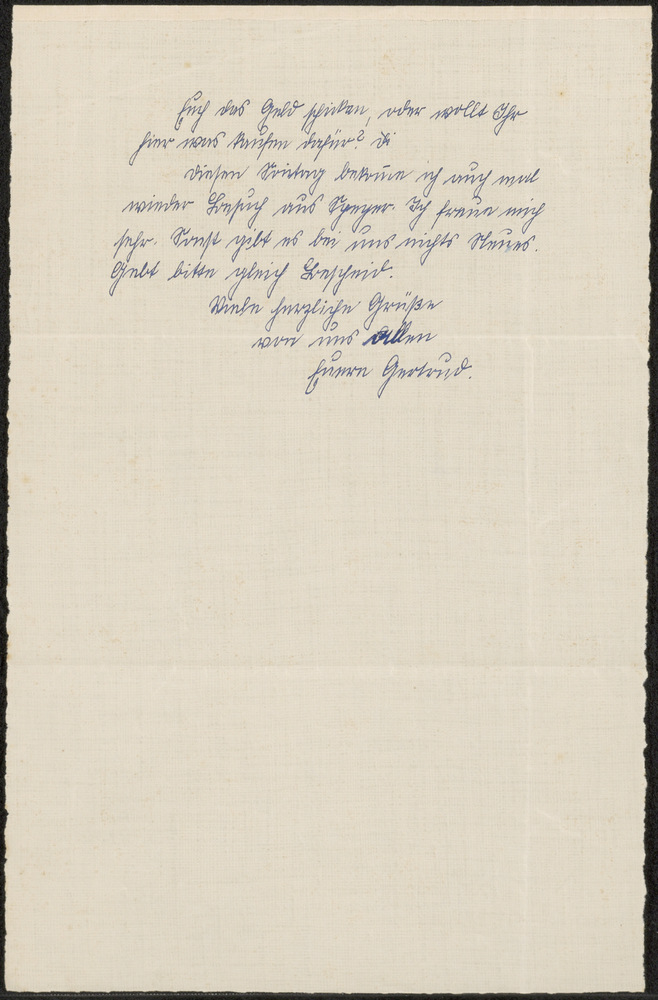 Euch das Geld schicken, oder wollt Ihr
hier was kaufen dafür? Di
Diesen Sonntag bekomme ich auch mal
wieder Besuch aus Speyer. Ich freue mich
sehr. Sonst gibt es bei uns nichts Neues.
Gebt bitte gleich Bescheid.
Viele herzliche Grüße
von uns allen
Euere Gertrud.